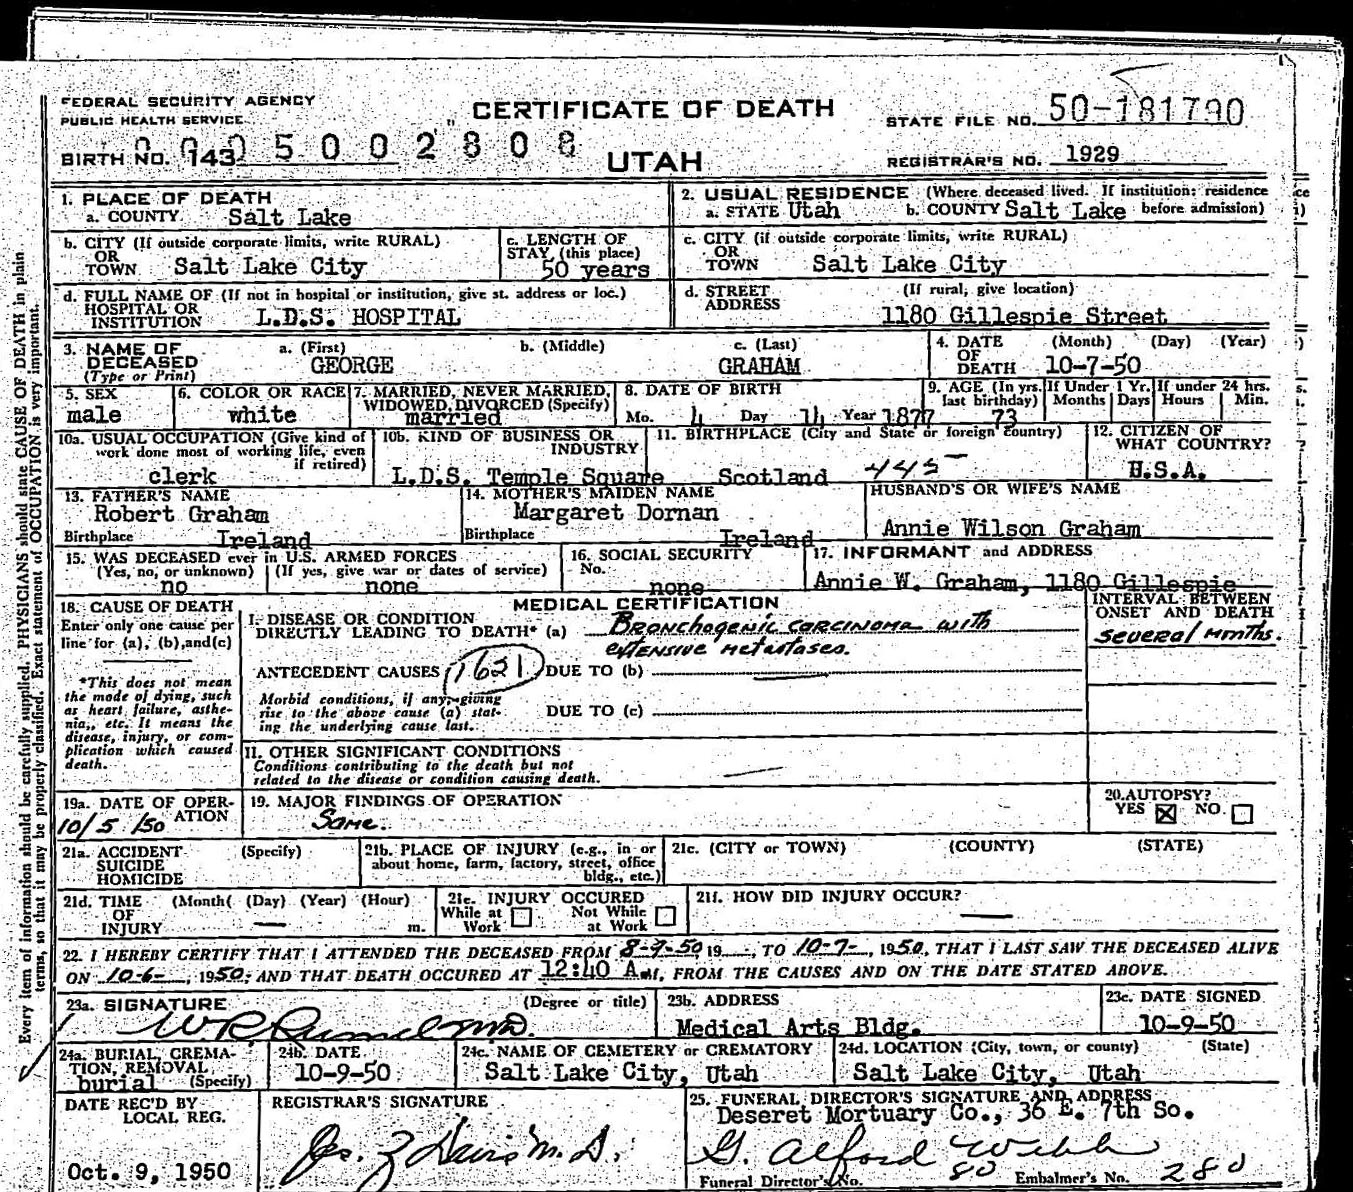 FEDERAL SECURITY AGENCY
PUBLIC HEALTH SERVICE
CERTIFICATE OF DEATH
STATE FILE NO. 50-181790
BIRTH NO. 143
0005002808
UTAH
REGISTRAR'S NO. 1929
1. PLACE OF DEATH
a. COUNTY Salt Lake
2. USUAL RESIDENCE (Where deceased lived. If institution: residence
a. STATE Utah b. COUNTY Salt Lake before admission)
b. CITY (If outside corporate limits, write RURAL)
OR
TOWN Salt Lake City
c. LENGTH OF
STAY (this place)
50 years
c. CITY (if outside corporate limits, write RURAL)
OR
TOWN Salt Lake City
d. FULL NAME OF (If not in hospital or institution, give st. address or loc.)
HOSPITAL OR
INSTITUTION L.D.S. HOSPITAL
d. STREET (If rural, give location)
ADDRESS
1180 Gillespie Street
3. NAME OF a. (First) b. (Middle) c. (Last)
DECEASED GEORGE GRAHAM
(Type or Print)
4. DATE (Month) (Day) (Year)
OF
DEATH 10-7-50
5. SEX
male
6. COLOR OR RACE
white
7. MARRIED, NEVER MARRIED,
WIDOWED, DIVORCED (Specify)
married
8. DATE OF BIRTH
Mo. 4 Day 14 Year 1877
9. AGE (In yrs.
last birthday)
73
If Under 1 Yr.
Months Days
If under 24 hrs.
Hours Min.
10a. USUAL OCCUPATION (Give kind of
work done most of working life, even
if retired)
clerk
10b. KIND OF BUSINESS OR
INDUSTRY
L.D.S. Temple Square
11. BIRTHPLACE (City and State or foreign country)
Scotland 445
12. CITIZEN OF
WHAT COUNTRY?
U.S.A.
13. FATHER'S NAME
Robert Graham
Birthplace Ireland
14. MOTHER'S MAIDEN NAME
Margaret Dornan
Birthplace Ireland
HUSBAND'S OR WIFE'S NAME
Annie Wilson Graham
15. WAS DECEASED ever in U.S. ARMED FORCES
(Yes, no, or unknown) (If yes, give war or dates of service)
no none
16. SOCIAL SECURITY
No.
none
17. INFORMANT and ADDRESS
Annie W. Graham, 1180 Gillespie
18. CAUSE OF DEATH
Enter only one cause per
line for (a), (b), and (c)
*This does not mean
the mode of dying, such
as heart failure, asthe-
nia, etc. It means the
disease, injury, or com-
plication which caused
death.
MEDICAL CERTIFICATION
I. DISEASE OR CONDITION
DIRECTLY LEADING TO DEATH* (a) Bronchogenic carcinoma with
extensive metastases.
ANTECEDENT CAUSES 1621 DUE TO (b)
Morbid conditions, if any, giving
rise to the above cause (a) stat-
ing the underlying cause last.
DUE TO (c)
INTERVAL BETWEEN
ONSET AND DEATH
several months.
II. OTHER SIGNIFICANT CONDITIONS
Conditions contributing to the death but not
related to the disease or condition causing death.
19a. DATE OF OPER-
ATION
10/5/50
19. MAJOR FINDINGS OF OPERATION
Same.
20. AUTOPSY?
YES ☒ NO ☐
21a. ACCIDENT (Specify)
SUICIDE
HOMICIDE
21b. PLACE OF INJURY (e.g., in or
about home, farm, factory, street, office
bldg., etc.)
21c. (CITY or TOWN) (COUNTY) (STATE)
21d. TIME (Month( (Day) (Year) (Hour)
OF
INJURY — m.
21e. INJURY OCCURED
While at ☐ Not While ☐
Work at Work
21f. HOW DID INJURY OCCUR?
—
22. I HEREBY CERTIFY THAT I ATTENDED THE DECEASED FROM 8-9-50 19__, TO 10-7-, 1950, THAT I LAST SAW THE DECEASED ALIVE
ON 10-6-, 1950, AND THAT DEATH OCCURED AT 12:40 A.M, FROM THE CAUSES AND ON THE DATE STATED ABOVE.
23a. SIGNATURE (Degree or title)
23b. ADDRESS
Medical Arts Bldg.
23c. DATE SIGNED
10-9-50
24a. BURIAL, CREMA-
TION, REMOVAL
burial (Specify)
24b. DATE
10-9-50
24c. NAME OF CEMETERY or CREMATORY
Salt Lake City, Utah
24d. LOCATION (City, town, or county) (State)
Salt Lake City, Utah
DATE REC'D BY
LOCAL REG.
Oct. 9, 1950
REGISTRAR'S SIGNATURE
25. FUNERAL DIRECTOR'S SIGNATURE AND ADDRESS
Deseret Mortuary Co., 36 E. 7th So.
G. Alford Webb
Funeral Director's No. 80 Embalmer's No. 280
Every item of information should be carefully supplied. PHYSICIANS should state CAUSE OF DEATH in plain
terms, so that it may be properly classified. Exact statement of OCCUPATION is very important.